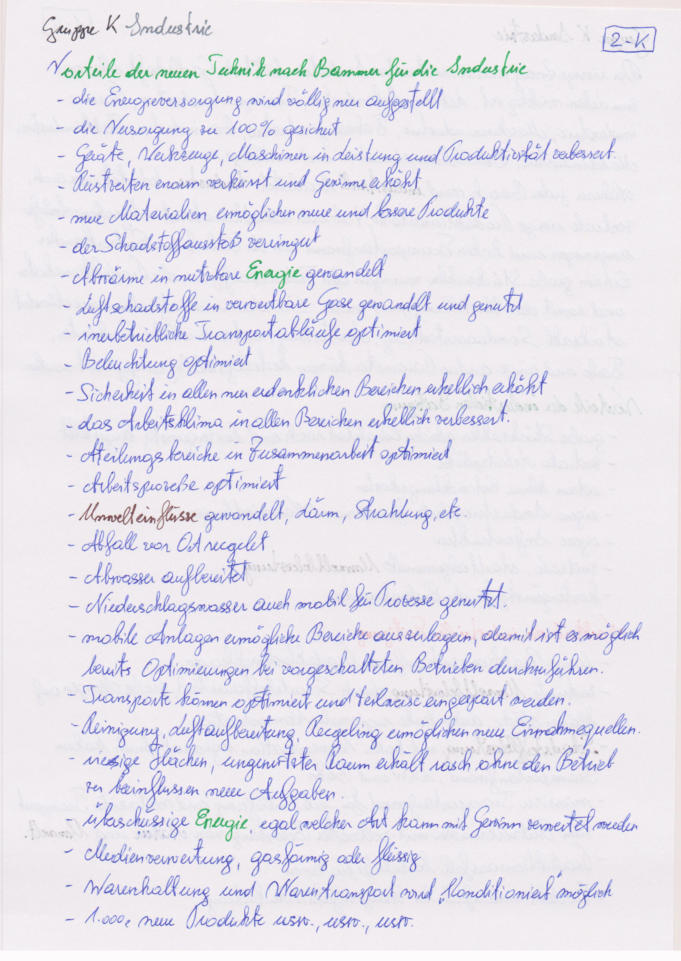 Gruppe K Industrie
2-K
Vorteile der neuen Technik nach Bammer für die Industrie
- die Energieversorgung wird völlig neu aufgestellt
- die Versorgung zu 100% gesichert
- Geräte, Werkzeuge, Maschinen in Leistung und Produktivität verbessert.
- Rüstzeiten enorm verkürzt und Gewinne erhöht
- neue Materialien ermöglichen neue und bessere Produkte
- der Schadstoffausstoß verringert
- Abwärme in nutzbare Energie gewandelt
- Luftschadstoffe in verwertbare Gase gewandelt und genutzt
- innerbetriebliche Transportabläufe optimiert
- Beleuchtung optimiert
- Sicherheit in allen nur erdenklichen Bereichen erheblich erhöht
- das Arbeitsklima in allen Bereichen erheblich verbessert.
- Ateilungsbereiche in Zusammenarbeit optimiert
- Arbeitsprozeße optimiert
- Umwelteinflüsse gewandelt, Lärm, Strahlung, etc.
- Abfall vor Ort recycelt
- Abwasser aufbereitet
- Niederschlagswasser auch mobil für Prozesse genutzt.
- mobile Anlagen ermögliche Bereiche auszulagern, damit ist es möglich
bereits Optimierungen bei vorgeschalteten Betrieben durchzuführen.
- Transporte können optimiert und teilweise eingespart werden.
- Reinigung, Luftaufbereitung, Recyceling ermöglichen neue Einnahmequellen.
- riesige Flächen, ungenutzter Raum erhält rasch ohne den Betrieb
zu beinflussen neue Aufgaben.
- überschüssige Energie, egal welcher Art kann mit Gewinn verwertet werden
- Medienverwertung, gasförmig oder flüssig
- Warenhaltung und Warentransport wird "Konditioniert" möglich
- 1.000e neue Produkte usw., usw., usw.